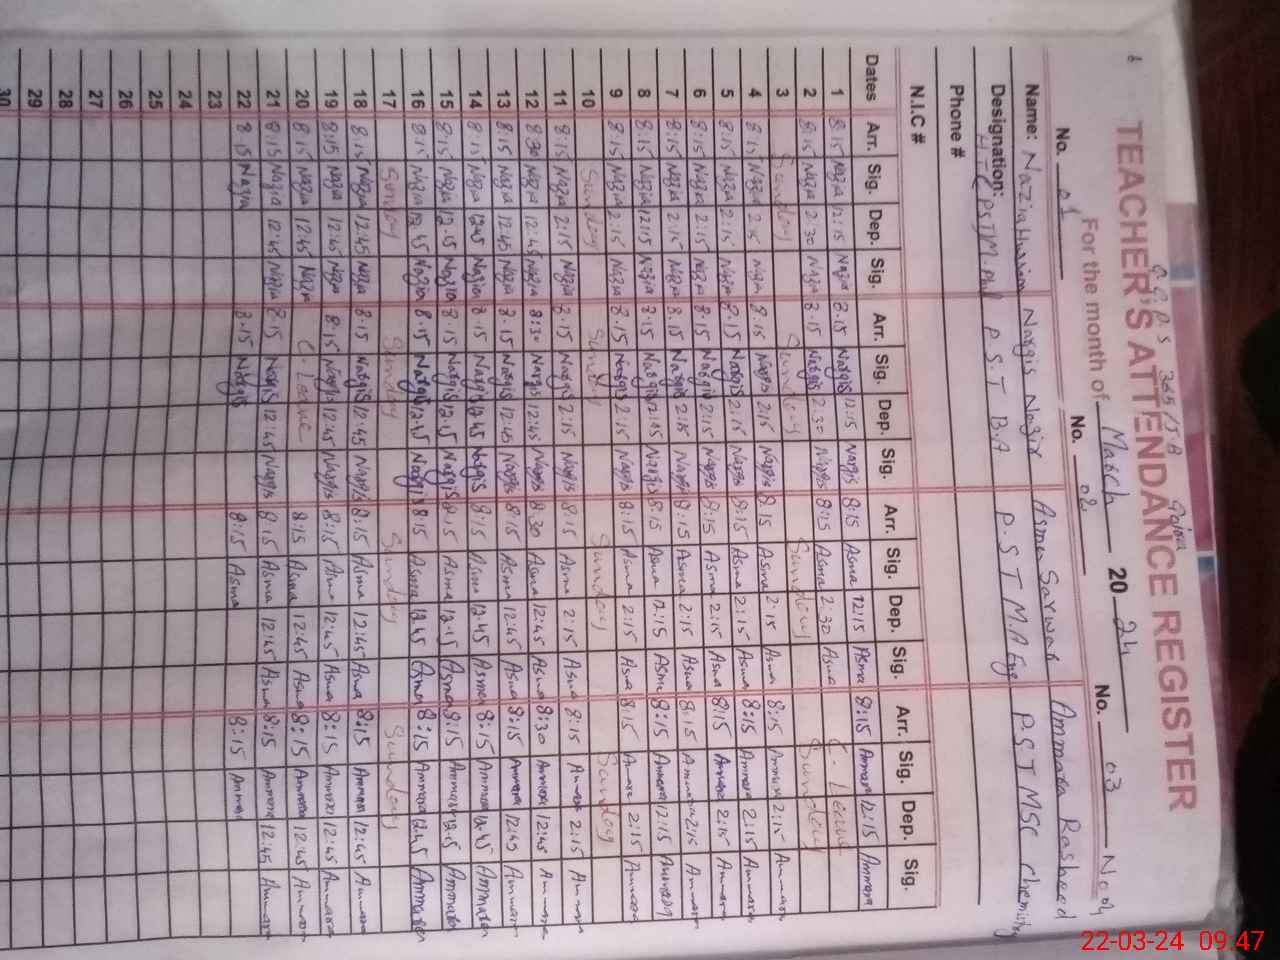 6
G.G.P.S 365/J.B Gojra
TEACHER'S ATTENDANCE REGISTER
For the month of March 2024
No. 01 No. 02 No. 03 No. 04
Name: Nazia Nargis Nazir Asma Sarwar Ammara Rasheed
Designation: P.S.T B.A P.S.T M.A Eng P.S.T MSC Chemistry
Phone #
N.I.C #
Dates Arr. Sig. Dep. Sig. Arr. Sig. Dep. Sig. Arr. Sig. Dep. Sig. Arr. Sig. Dep. Sig.
1 8:15 Nazia 12:15 Nazia 8:15 Nargis 12:15 Nargis 8:15 Asma 12:15 Asma 8:15 Ammara 12:15 Ammara
2 8:15 Nazia 2:30 Nazia 8:15 Nargis 2:30 Nargis 8:15 Asma 2:30 Asma C. Leave
3 Sunday Sunday Sunday Sunday
4 8:15 Nazia 2:15 Nazia 8:15 Nargis 2:15 Nargis 8:15 Asma 2:15 Asma 8:15 Ammara 2:15 Ammara
5 8:15 Nazia 2:15 Nazia 8:15 Nargis 2:15 Nargis 8:15 Asma 2:15 Asma 8:15 Ammara 2:15 Ammara
6 8:15 Nazia 2:15 Nazia 8:15 Nargis 2:15 Nargis 8:15 Asma 2:15 Asma 8:15 Ammara 2:15 Ammara
7 8:15 Nazia 2:15 Nazia 8:15 Nargis 2:15 Nargis 8:15 Asma 2:15 Asma 8:15 Ammara 2:15 Ammara
8 8:15 Nazia 12:15 Nazia 8:15 Nargis 12:15 Nargis 8:15 Asma 12:15 Asma 8:15 Ammara 12:15 Ammara
9 8:15 Nazia 2:15 Nazia 8:15 Nargis 2:15 Nargis 8:15 Asma 2:15 Asma 8:15 Ammara 2:15 Ammara
10 Sunday Sunday Sunday Sunday
11 8:15 Nazia 2:15 Nazia 8:15 Nargis 2:15 Nargis 8:15 Asma 2:15 Asma 8:15 Ammara 2:15 Ammara
12 8:30 Nazia 12:45 Nazia 8:30 Nargis 12:45 Nargis 8:30 Asma 12:45 Asma 8:30 Ammara 12:45 Ammara
13 8:15 Nazia 12:45 Nazia 8:15 Nargis 12:45 Nargis 8:15 Asma 12:45 Asma 8:15 Ammara 12:45 Ammara
14 8:15 Nazia 12:45 Nazia 8:15 Nargis 12:45 Nargis 8:15 Asma 12:45 Asma 8:15 Ammara 12:45 Ammara
15 8:15 Nazia 12:15 Nazia 8:15 Nargis 12:15 Nargis 8:15 Asma 12:15 Asma 8:15 Ammara 12:15 Ammara
16 8:15 Nazia 12:45 Nazia 8:15 Nargis 12:45 Nargis 8:15 Asma 12:45 Asma 8:15 Ammara 12:45 Ammara
17 Sunday Sunday Sunday Sunday
18 8:15 Nazia 12:45 Nazia 8:15 Nargis 12:45 Nargis 8:15 Asma 12:45 Asma 8:15 Ammara 12:45 Ammara
19 8:15 Nazia 12:45 Nazia 8:15 Nargis 12:45 Nargis 8:15 Asma 12:45 Asma 8:15 Ammara 12:45 Ammara
20 8:15 Nazia 12:45 Nazia C. Leave 8:15 Asma 12:45 Asma 8:15 Ammara 12:45 Ammara
21 8:15 Nazia 12:45 Nazia 8:15 Nargis 12:45 Nargis 8:15 Asma 12:45 Asma 8:15 Ammara 12:45 Ammara
22 8:15 Nazia 8:15 Nargis 8:15 Asma 8:15 Ammara
23
24
25
26
27
28
29
30
22-03-24 09:47